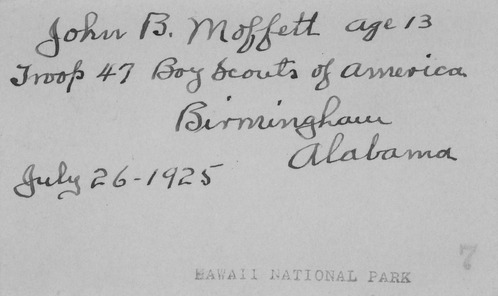 John B. Moffett age 13
Troop 47 Boy Scouts of America
Birmingham
Alabama
July 26-1925
7
HAWAII NATIONAL PARK